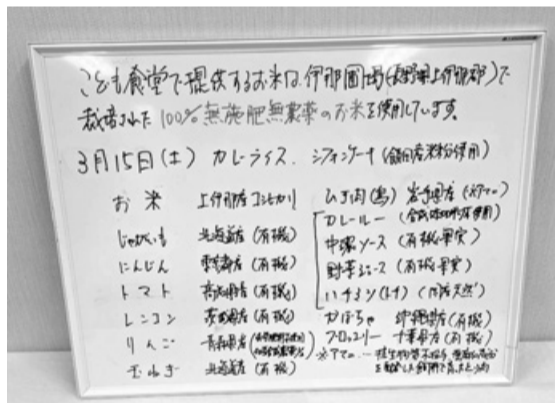 こども食堂で提供するお米は、伊那圃場(長野県上伊那郡)で
栽培された 100%無施肥無農薬のお米を使用しています。
3月15日(土) カレーライス、シフォンケーキ(飯田産米粉使用)
お米 上伊那産コシヒカリ
じゃがいも 北海道産(有機)
にんじん (有機)
トマト 高知県産(有機)
レンコン 茨城県産(有機)
りんご 青森県産
玉ねぎ 北海道産(有機)
ムネ肉(鳥) 岩手県産
カレールー
中濃ソース(有機・果実)
野菜ジュース(有機・果実)
ハチミツ
かぼちゃ 沖縄県産(有機)
ブロッコリー 千葉県産(有機)